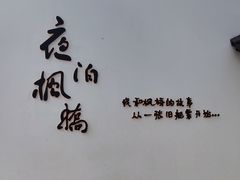 夜泊
枫桥
我和枫桥的故事
从一张旧船票开始...